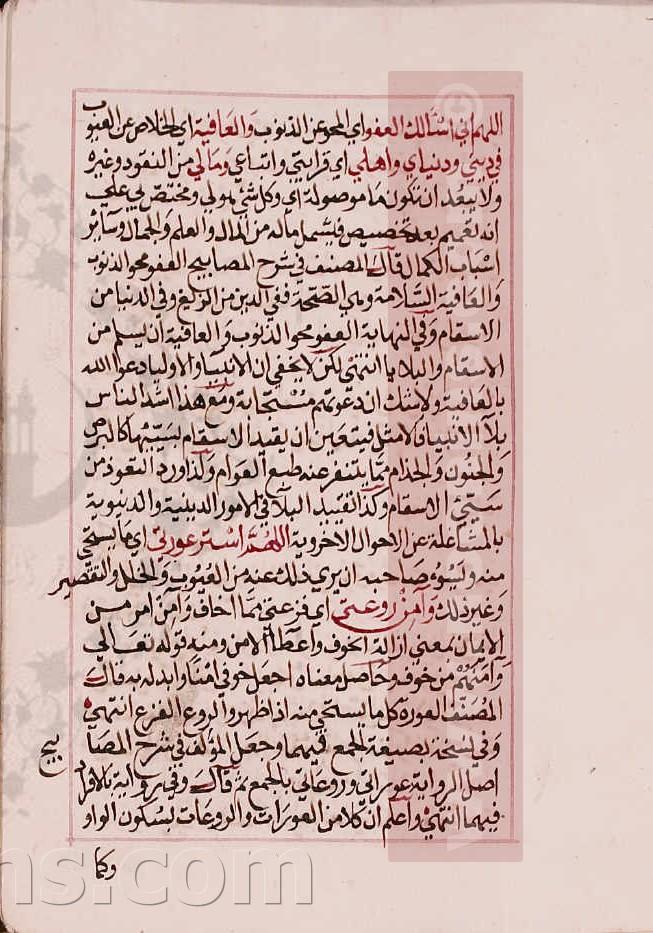 اللهم اني اسٔالك العفو اي المحو عن الذنوب والعافية اي الخلاص عن العيوب
في ديني ودنياي واهلي اي قرابتي واتباعي ومالي من النقود وغيره
ولا يبعد ان تكون ما موصولة اي وكل شئ هو لي ومختص بي علي
انه تعميم بعد تخصيص فيشمل ماله من المال والعلم والجمال وسآئر
اسباب الكمال قال المصنف في شرح المصابيح العفو محو الذنوب
والعافية السلامة وهي الصحة ففي الدين من الزيغ وفي الدنيا من
الاسقام وفي النهاية العفو محو الذنوب والعافية ان يسلم من
الاسقام والبلايا انتهي لكن لا يخفي ان الانبيآ والاوليا دعوا الله
بالعافية ولا شك ان دعوتهم مستجابة ومع هذا اشد الناس
بلآ الانبيآ فالامثل فيتعين ان يقيد الاسقام بسيئها كالبرص
والجنون والجذام مما يتنفر عنه طبع العوام ولذا ورد التعوذ من
سيئ الاسقام وكذا تقييد البلآ في الامور الدينية والدنيوية
بالمشاغلة عن الاحوال الاخروية اللهم استر عورتي اي ما يستحي
منه ويسوه صاحبه ان يري ذلك عنه من العيوب والخلل والتقصير
وغير ذلك وآمن روعتي اي فزعتي مما اخاف وآمن امر من
الايمان بمعني ازالة الخوف واعطا الامن ومنه قوله تعالي
وآمنهم من خوف وحاصل معناه اجعل خوفي امنا وابدله به قال
المصنف العورة كل ما يستحي منه اذا ظهر والروع الفزع انتهي
وفي نسخة بصيغة الجمع فيهما وجعل المؤلف في شرح المصا بيح
اصل الرواية عوراتي وروعاتي بالجمع ثم قال وفي رواية بالافراد
فيهما انتهي واعلم ان كلا من العورات والروعات بسكون الواو
وكما
ns.com